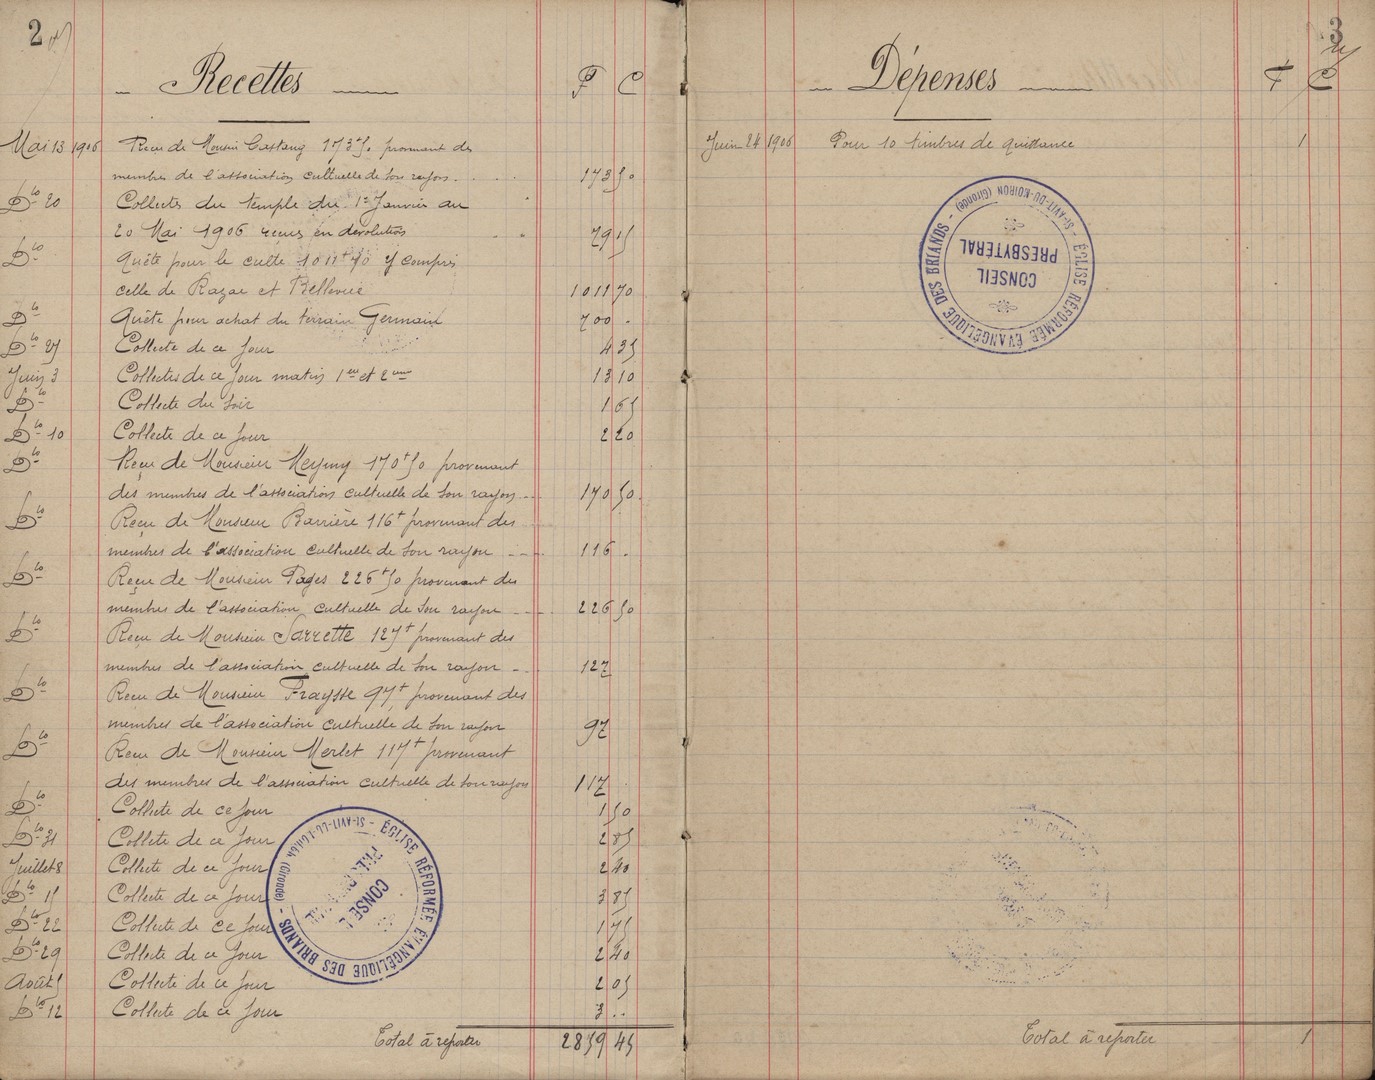 2
Recettes F C
Mai 13 1906 Reçu de Monsieur Castaing 173f50 provenant des
membres de l'association cultuelle de son rayon. 173 50
Dto 20 Collectes du temple du 1er Janvier au
20 Mai 1906 reçues en dévolution 79 15
Dto Quête pour le culte 1011f70 y compris
celle de Razac et Bellevue 1011 70
Dto Quête pour achat du terrain Germain 700 .
Dto 27 Collecte de ce Jour 4 35
Juin 3 Collectes de ce Jour matin 1ère et 2ème 13 10
Dto Collecte du soir 1 65
Dto 10 Collecte de ce Jour 2 20
Dto Reçu de Monsieur Meymy 170f50 provenant
des membres de l'association cultuelle de son rayon 170 50
Dto Reçu de Monsieur Barrière 116f provenant des
membres de l'association cultuelle de son rayon 116 .
Dto Reçu de Monsieur Pages 226f50 provenant des
membres de l'association cultuelle de son rayon 226 50
Dto Reçu de Monsieur Sarrette 127f provenant des
membres de l'association cultuelle de son rayon 127
Dto Reçu de Monsieur Fraysse 97f provenant des
membres de l'association cultuelle de son rayon 97
Dto Reçu de Monsieur Merlet 117f provenant
des membres de l'association cultuelle de son rayon 117
Dto Collecte de ce Jour 1 50
Dto Collecte de ce Jour 2 85
Juillet 8 Collecte de ce Jour 2 40
Dto 15 Collecte de ce Jour 3 85
Dto 22 Collecte de ce Jour 1 75
Dto 29 Collecte de ce Jour 2 40
Août 5 Collecte de ce Jour 2 05
Dto 12 Collecte de ce Jour 3 ..
Total à reporter 2859 45
ÉGLISE RÉFORMÉE ÉVANGÉLIQUE DES BRIANDS
CONSEIL
3
Dépenses F C
Juin 24 1906 Pour 10 timbres de quittance 1
ÉGLISE RÉFORMÉE ÉVANGÉLIQUE DES BRIANDS - St-AVIT-DU-MOIRON (Gironde) -
CONSEIL
PRESBYTÉRAL
Total à reporter 1